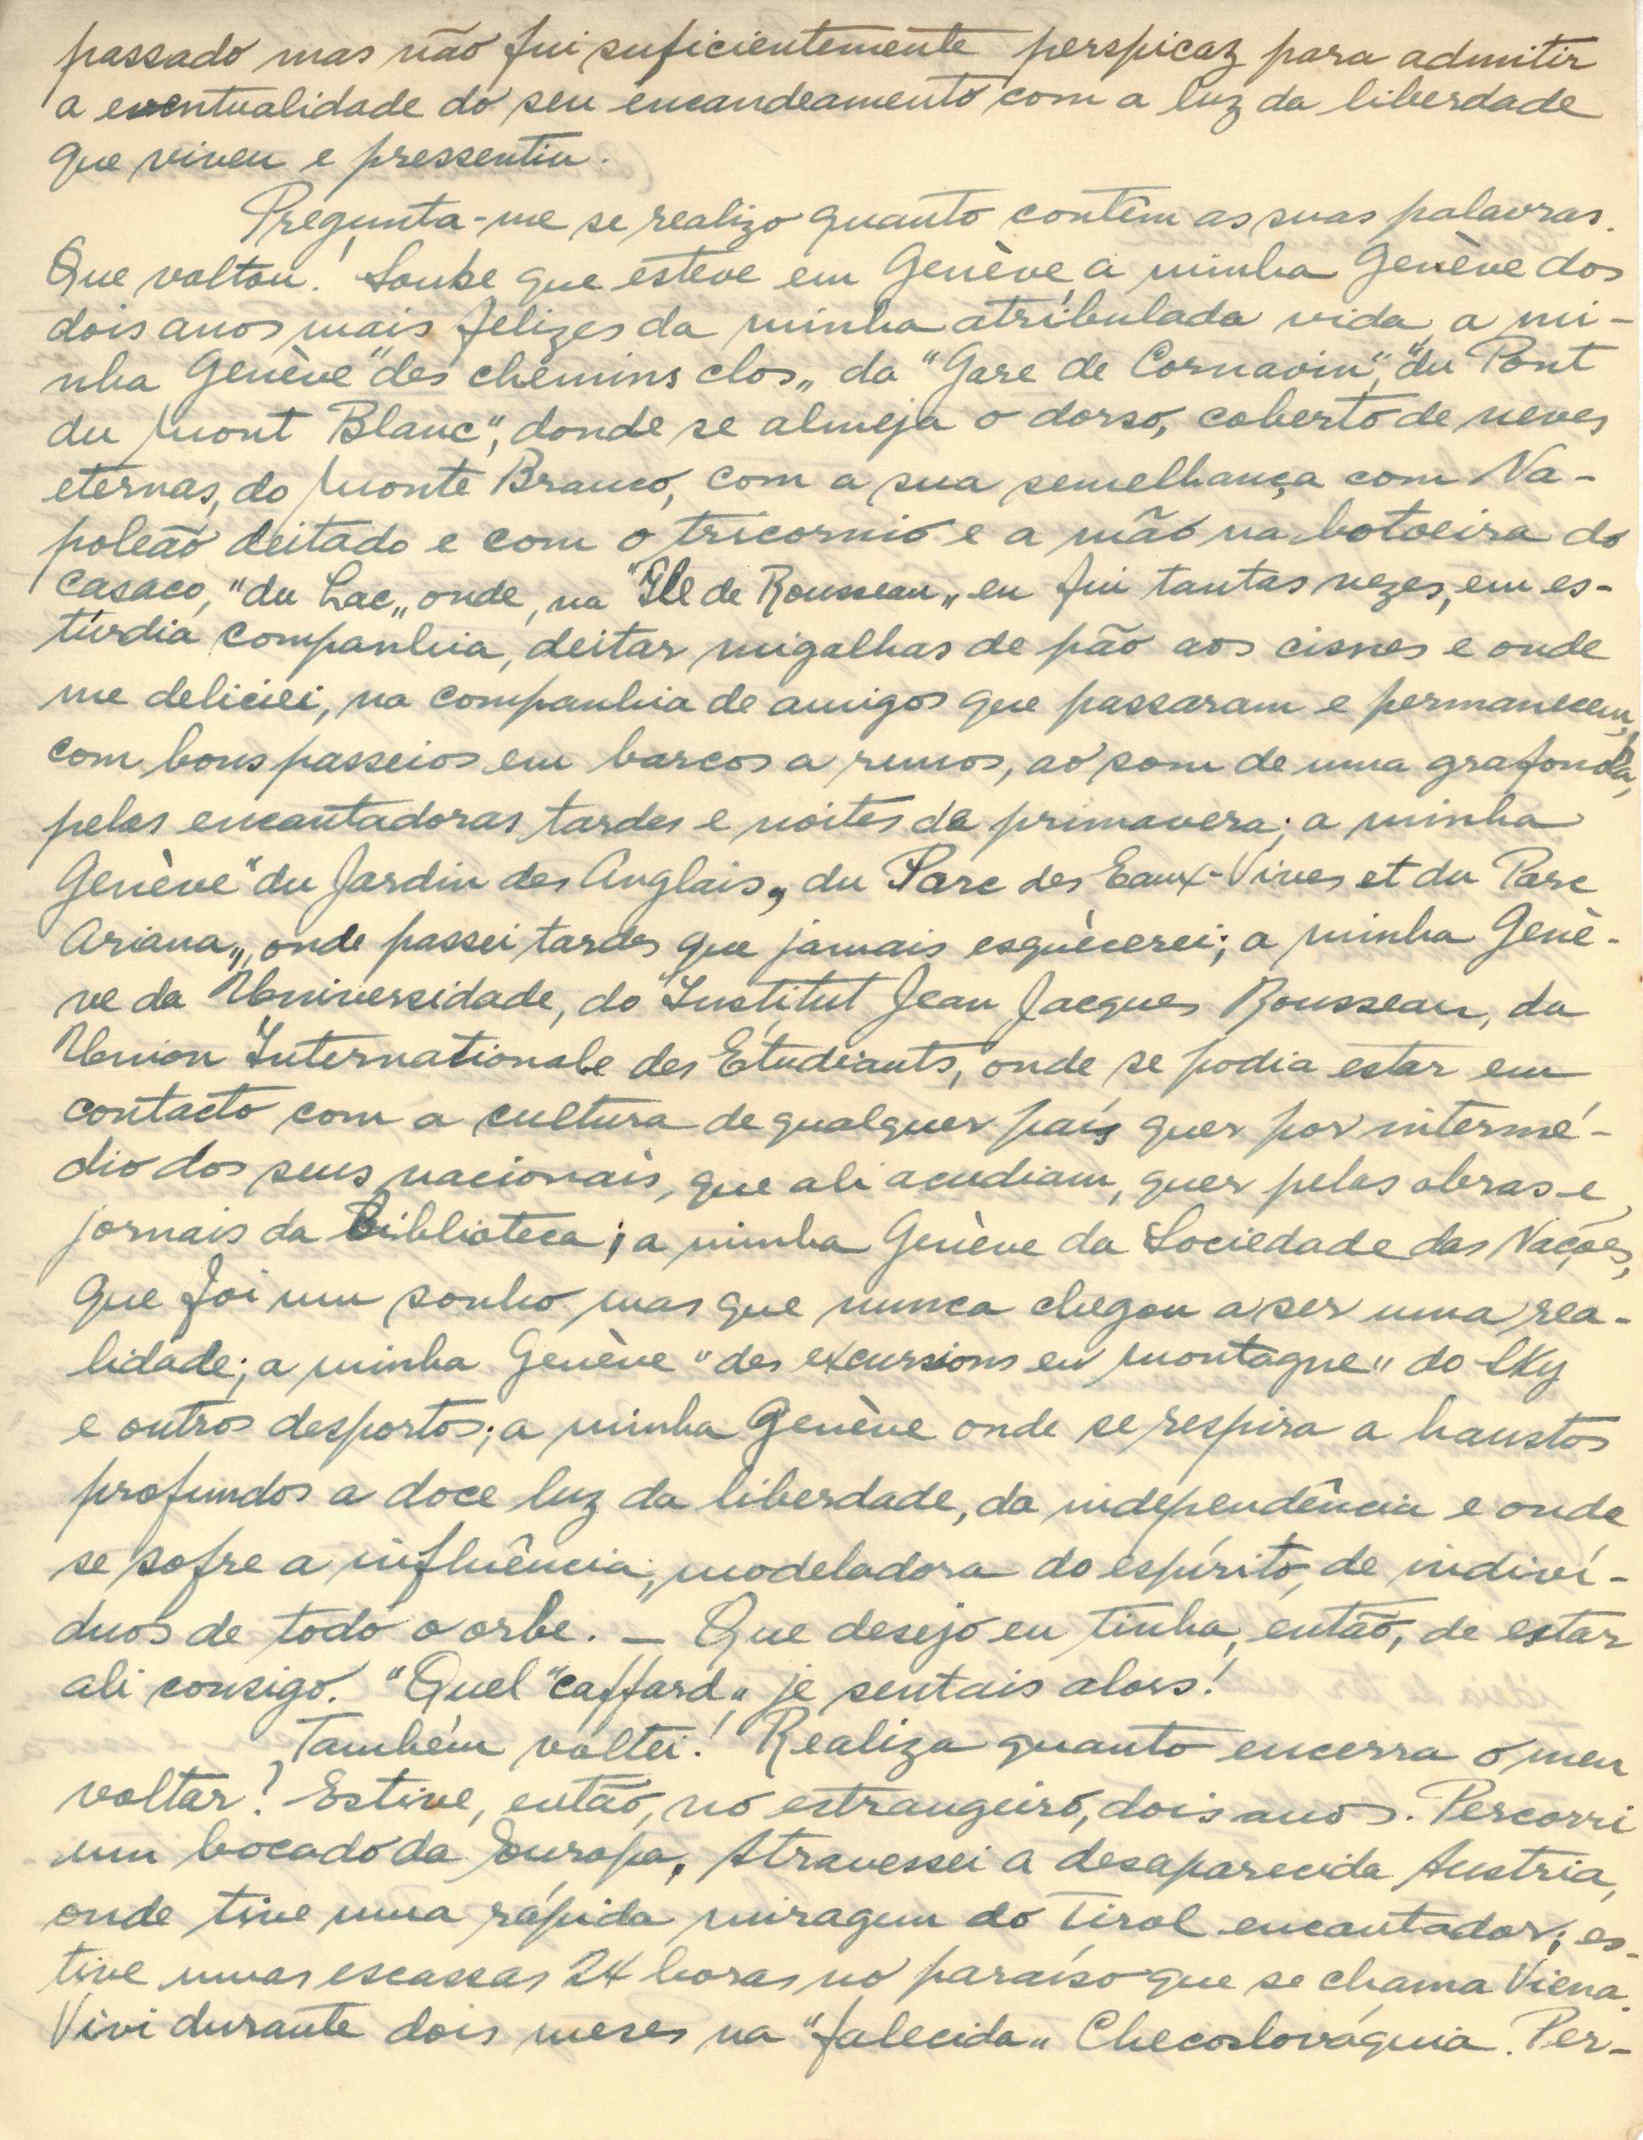 passado mas não fui suficientemente perspicaz para admitir
a eventualidade do seu encandeamento com a luz da liberdade
que viveu e pressentiu.
Pregunta-me se realizo quanto contêm as suas palavras.
Que voltou! Soube que esteve em Genève, a minha Genève dos
dois anos mais felizes da minha atribulada vida, a mi-
nha Genève "des chemins clos„ da "Gare de Cornavin", "du Pont
du Mont Blanc", donde se almeja o dorso, coberto de neves
eternas, do Monte Branco, com a sua semelhança com Na-
poleão deitado e com o tricornio e a mão na botoeira do
casaco, "du Lac„ onde, na "Ile de Rousseau„ eu fui tantas vezes, em es-
túrdia companhia, deitar migalhas de pão aos cisnes e onde
me deliciei, na companhia de amigos que passaram e permanecem,
com bons passeios em barcos a remos, ao som de uma grafonola,
pelas encantadoras tardes e noites da primavera; a minha
Genève "du Jardin des Anglais„ du Parc des Eaux-Vives et du Parc
Ariana„, onde passei tardes que jamais esquècerei; a minha Genè-
ve da Universidade, do "Institut Jean Jacques Rousseau, da
Union Internationale des Étudiants, onde se podia estar em
contacto com a cultura de qualquer país quer por intermé-
dio dos seus nacionais, que ali acudiam, quer pelas obras e
jornais da Biblioteca; a minha Genève da Sociedade das Nações,
que foi um sonho mas que nunca chegou a ser uma rea-
lidade; a minha Genève "des excursions en montagne" do Sky
e outros desportos; a minha Genève onde se respira a haustos
profundos a doce luz da liberdade, da independência e onde
se sofre a influência, modeladora do espírito, de indiví-
duos de todo o orbe. — Que desejo eu tinha, então, de estar
ali consigo. "Quel "caffard„ je sentais alors!
Também voltei! Realiza quanto encerra o meu
voltar? Estive, então, no estrangeiro, dois anos. Percorri
um bocado da Europa. Atravessei a desaparecida Austria,
onde tive uma rápida miragem do Tirol encantador; es-
tive umas escassas 24 horas no paraíso que se chama Viena.
Vivi durante dois meses na "falecida„ Checoslováquia. Per-